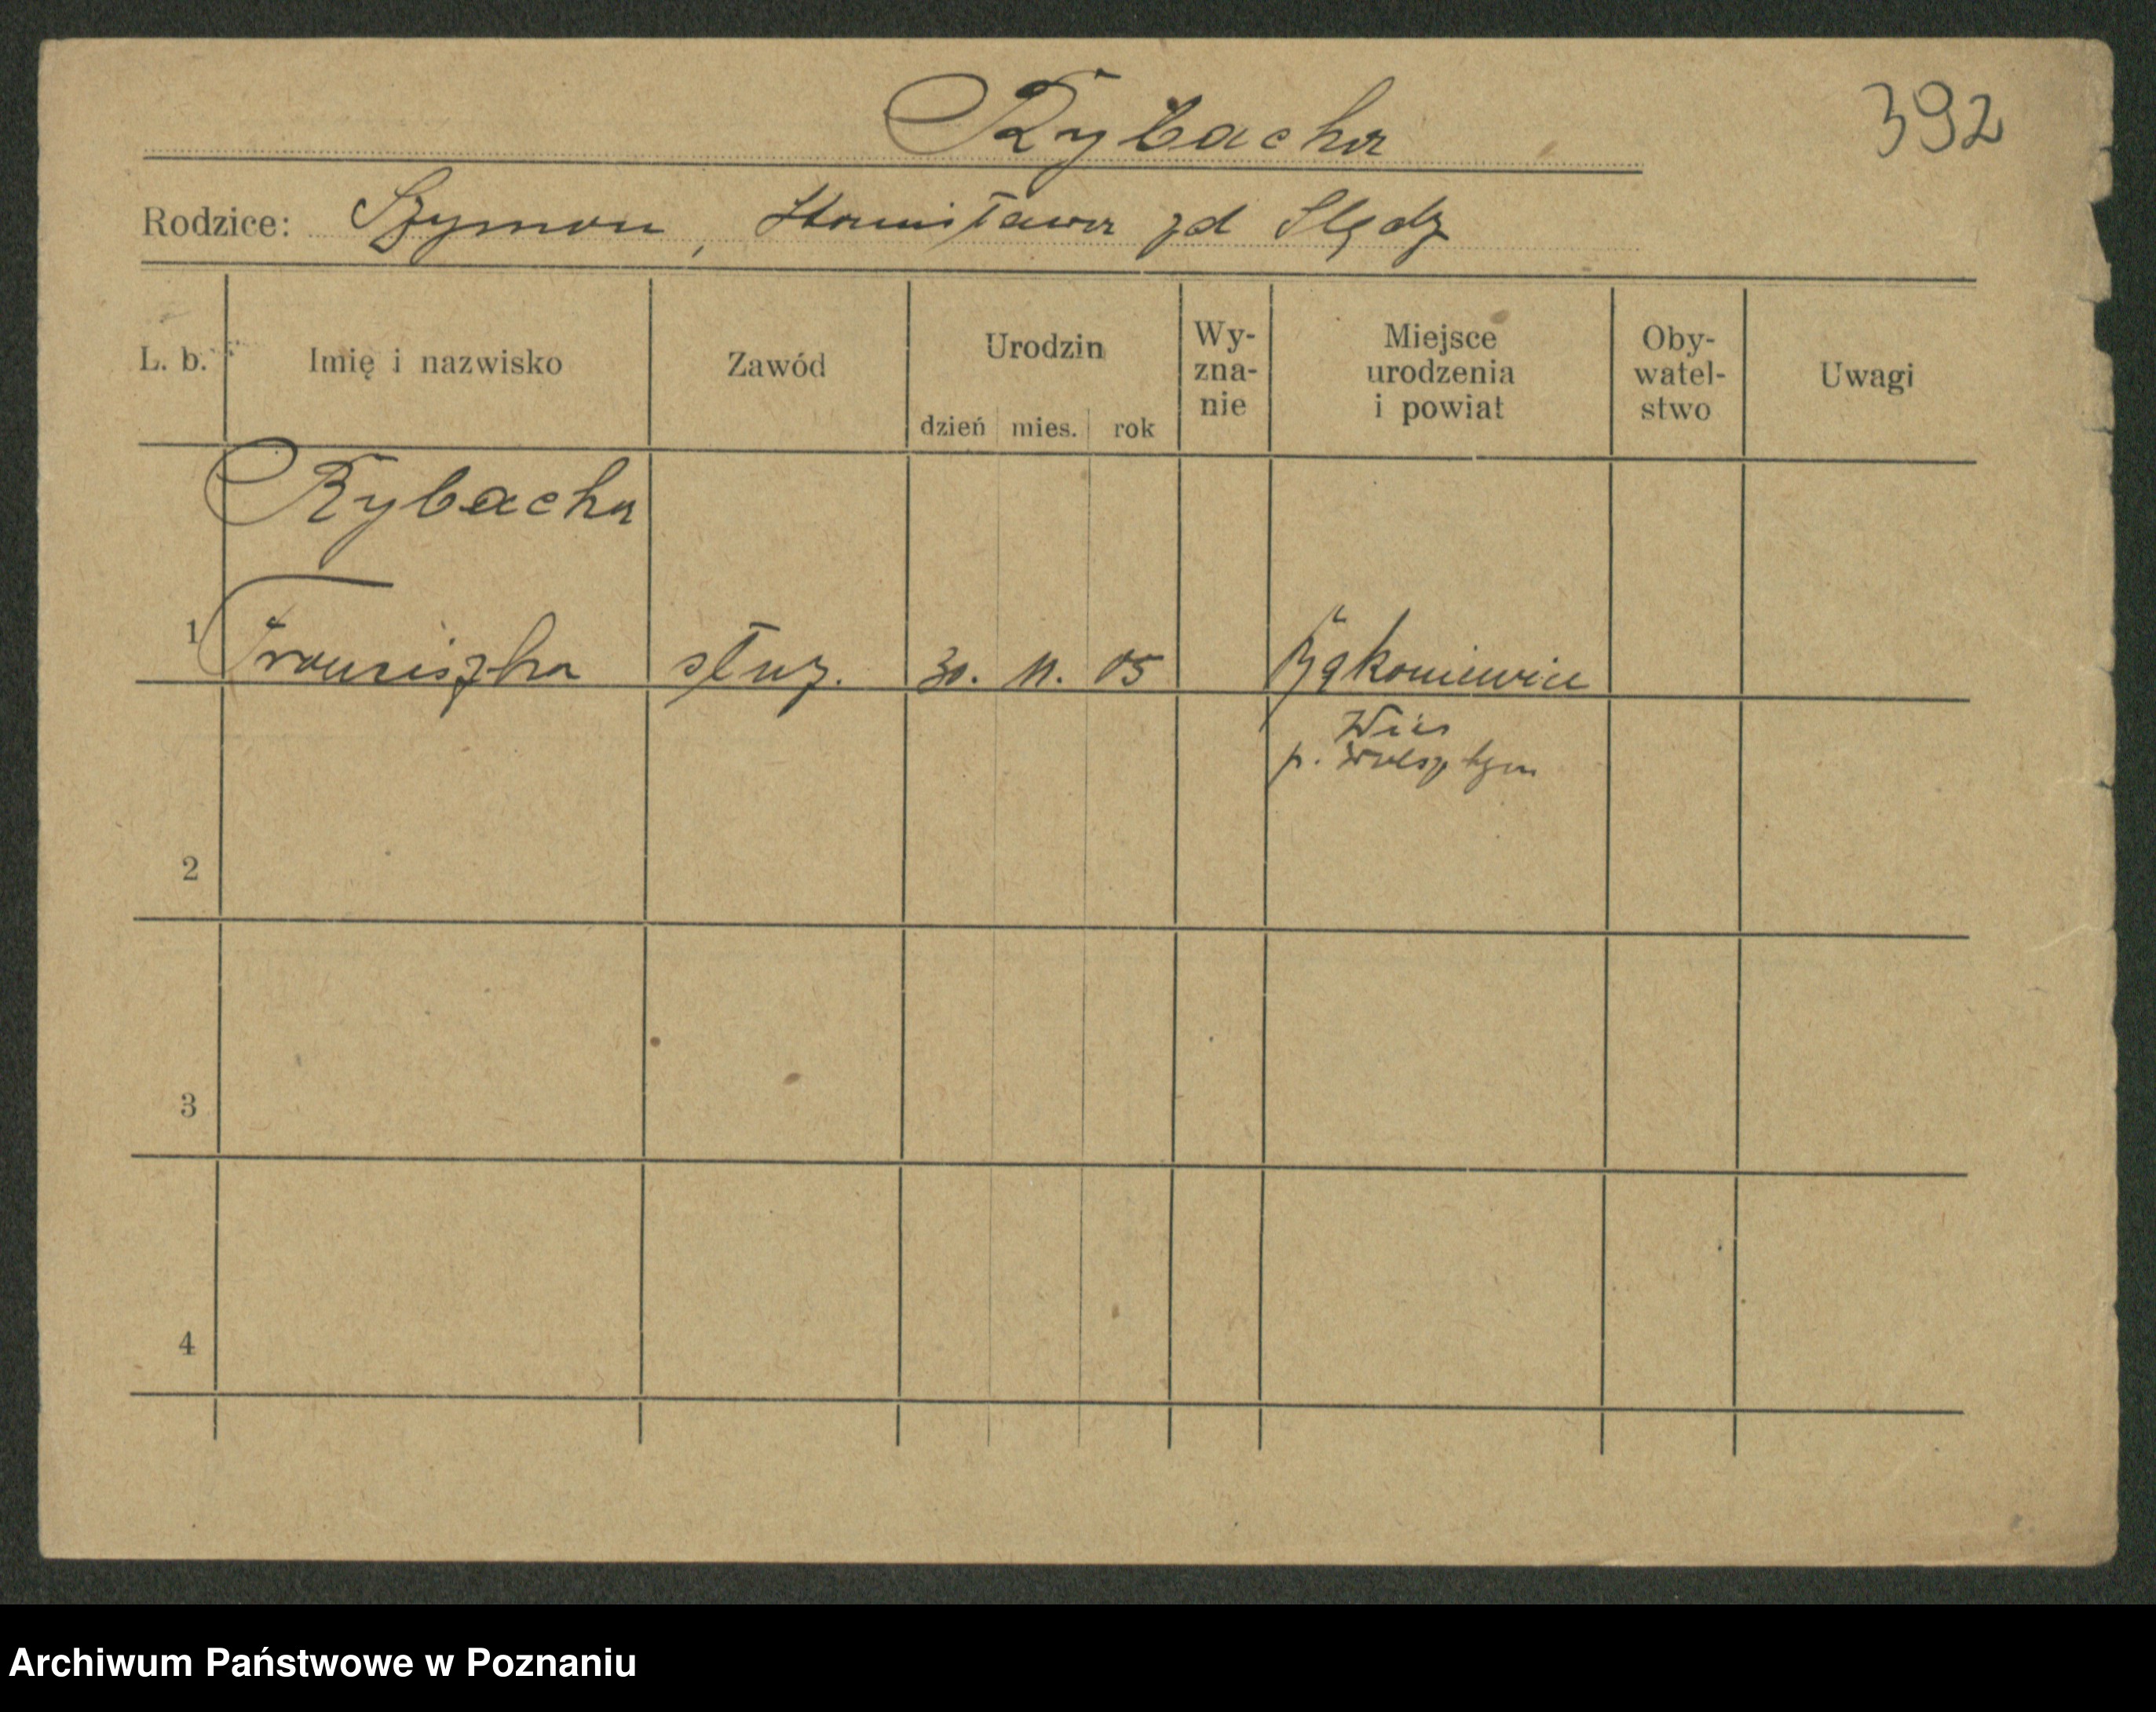 Rybacka
392
Rodzice: Szymon, Stanisława zd Slędz
L. b. Imię i nazwisko Zawód Urodzin dzień mies. rok Wy-zna-nie Miejsce urodzenia i powiat Oby-watel-stwo Uwagi
Rybacka
1 Franciszka służ. 30. 11. 05 Rąkoniewice
Wieś
p. Wolsztyn
2
3
4
Archiwum Państwowe w Poznaniu